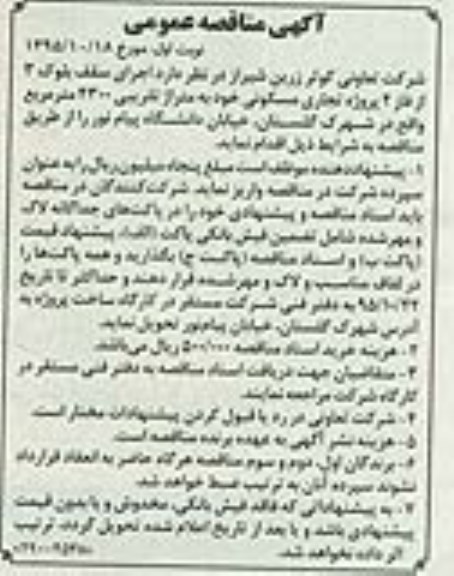 آگهی مناقصه عمومی
نوبت اول مورخ ۱۳۹۵/۱۰/۱۸
شرکت تعاونی کوثر زرین شیراز در نظر دارد اجرای سقف بلوک ۳
از فاز ۲ پروژه تجاری مسکونی خود به متراژ تقریبی ۲۳۰۰ مترمربع
واقع در شهرک گلستان، خیابان دانشگاه پیام نور را از طریق
مناقصه به شرایط ذیل اقدام نماید.
۱- پیشنهاددهنده موظف است مبلغ پنجاه میلیون ریال را به عنوان
سپرده شرکت در مناقصه واریز نماید. شرکت‌کنندگان در مناقصه
باید اسناد مناقصه و پیشنهادی خود را در پاکت‌های جداگانه لاک
و مهر شده شامل تضمین فیش بانکی پاکت (الف)، پیشنهاد قیمت
(پاکت ب) و اسناد مناقصه (پاکت ج) بگذارید و همه پاکت‌ها را
در لفاف مناسب و لاک و مهر شده قرار دهند و حداکثر تا تاریخ
۹۵/۱۰/۲۲ به دفتر فنی شرکت مستقر در کارگاه ساخت پروژه به
آدرس شهرک گلستان، خیابان پیام‌نور تحویل نماید.
۲- هزینه خرید اسناد مناقصه ۵۰۰/۰۰۰ ریال می‌باشد.
۳- متقاضیان جهت دریافت اسناد مناقصه به دفتر فنی مستقر در
کارگاه شرکت مراجعه نمایند.
۴- شرکت تعاونی در رد یا قبول کردن پیشنهادات مختار است.
۵- هزینه نشر آگهی به عهده برنده مناقصه است.
۶- برندگان اول، دوم و سوم مناقصه هرگاه حاضر به انعقاد قرارداد
نشوند سپرده آنان به ترتیب ضبط خواهد شد.
۷- به پیشنهاداتی که فاقد فیش بانکی، مخدوش و یا بدون قیمت
پیشنهادی باشد و یا بعد از تاریخ اعلام شده تحویل گردد، ترتیب
اثر داده نخواهد شد.